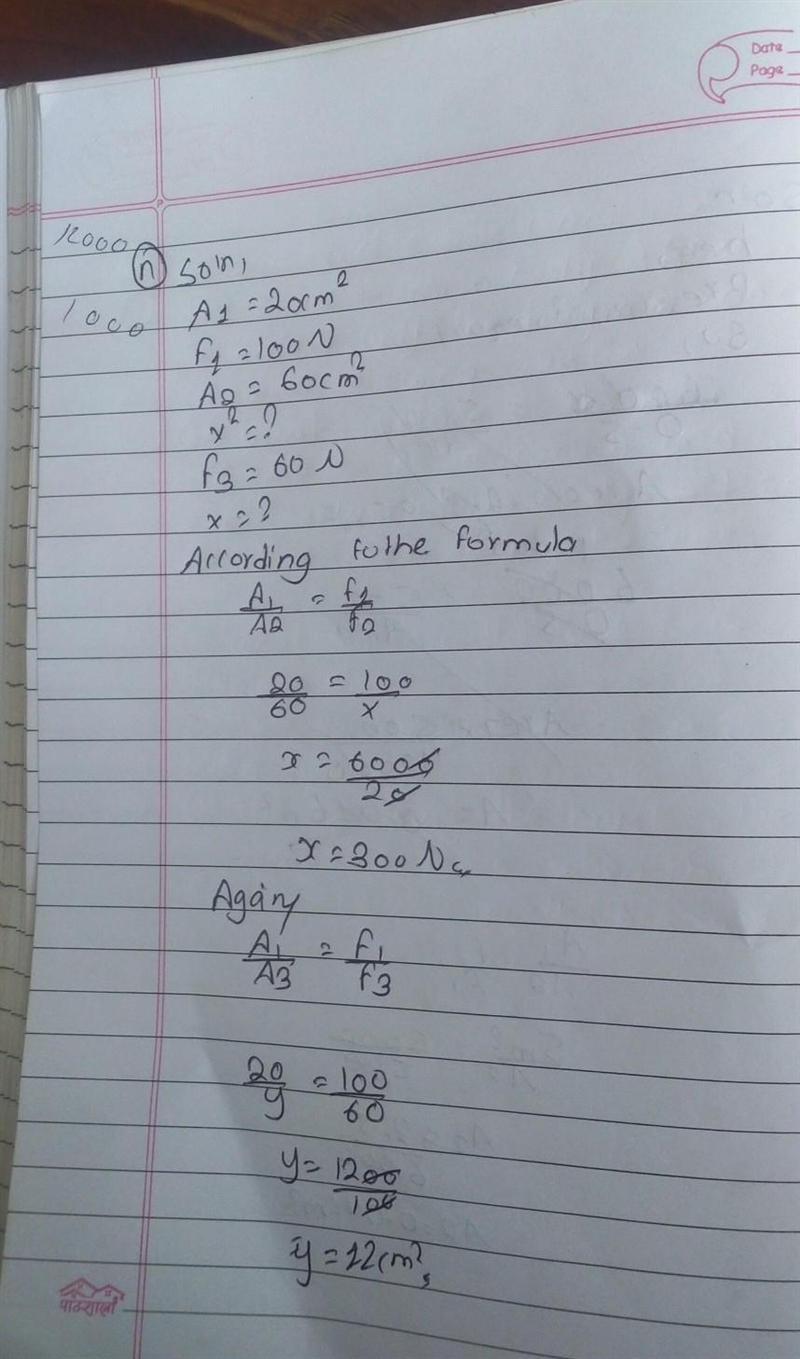 Date
Page
12000
(n) Soln,
1000
A1 = 20cm²
F1 = 100 N
A2 = 60cm²
x² = ?
F3 = 60 N
x = ?
According to the formula
A1/A2 = f1/f2
20/60 = 100/x
x = 6000/20
x = 300 N
Again,
A1/A3 = F1/F3
20/y = 100/60
y = 1200/100
y = 12cm²,
पाठशाला